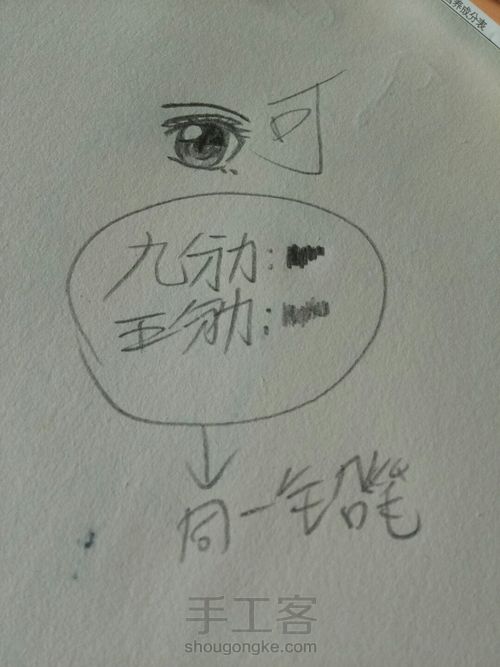 养成分表
可
九分力:
五分力:
同一铅笔
手工客
shougongke.com